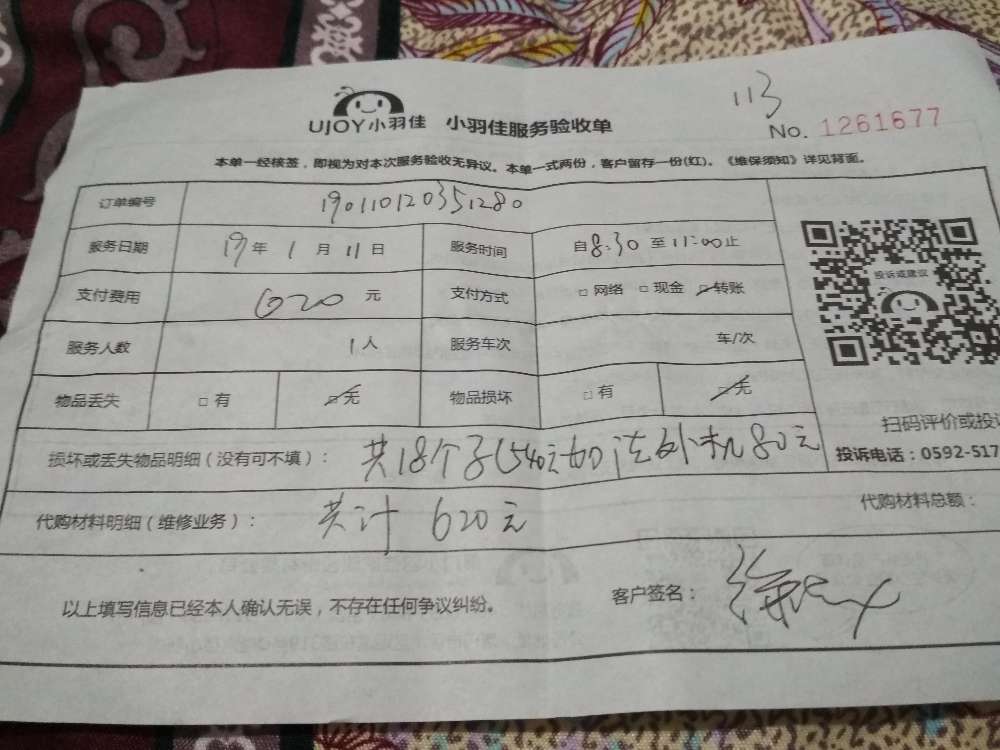 113
UJOY小羽佳 小羽佳服务验收单
No. 1261677
本单一经核签，即视为对本次服务验收无异议。本单一式两份，客户留存一份(红)。《维保须知》详见背面。
订单编号 190110120351280
服务日期 19年 1月 11日 服务时间 自8:30至11:00止
支付费用 620元 支付方式 □网络 □现金 □转账
投诉或建议
服务人数 1人 服务车次 车/次
物品丢失 □有 □无 物品损坏 □有 □无
扫码评价或投
损坏或丢失物品明细（没有可不填）： 共18个子(540元 加 外机80元
投诉电话：0592-517
代购材料明细（维修业务）： 共计 620元
代购材料总额：
以上填写信息已经本人确认无误，不存在任何争议纠纷。
客户签名：